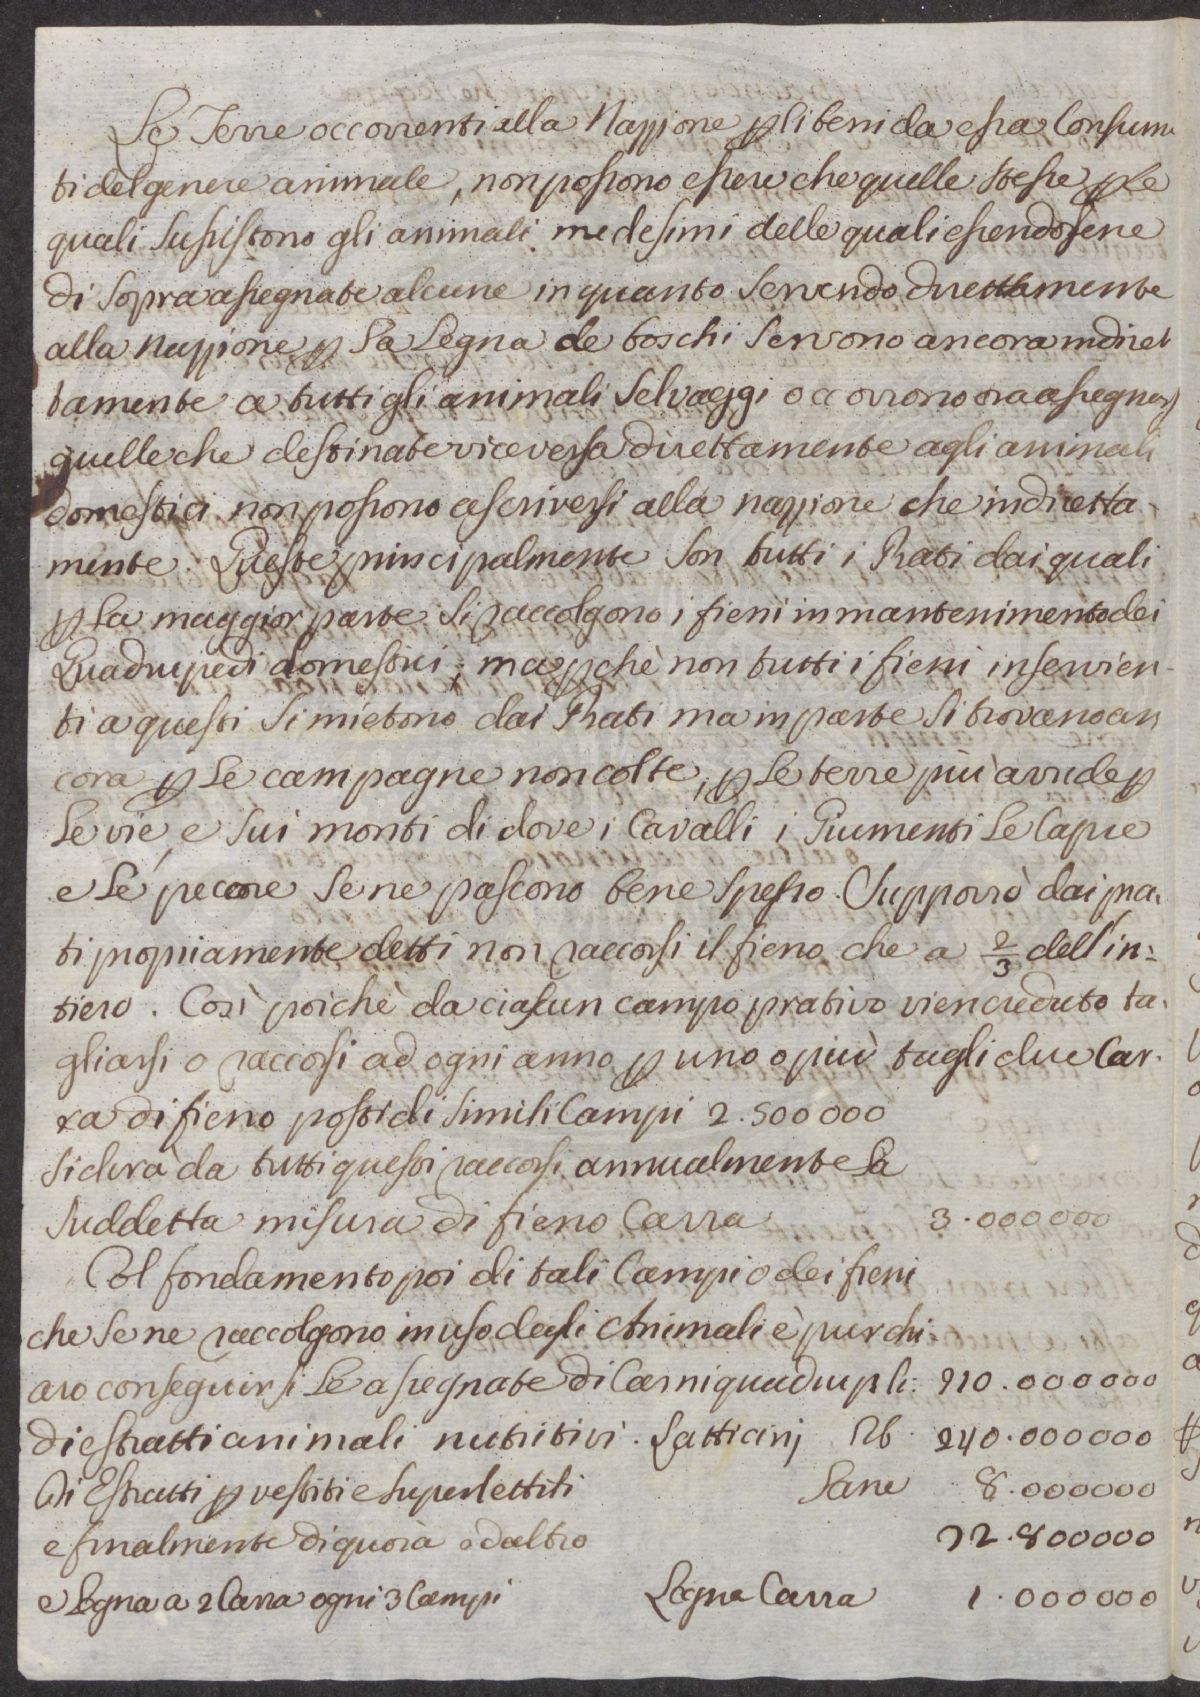 Le Terre occorrenti alla Nazzione p li beni da essa Consuma
ti del genere animale, non possono essere che quelle stesse p Le
quali sussistono gli animali medesimi delle quali essendosene
di sopra assegnate alcune in quanto servendo direttamente
alla Nazzione p La Legna de boschi servono ancora indiret
tamente a tutti gli animali selvaggi occorrono ora assegnarsi
quelle che destinate viceversa direttamente agli animali
domestici non possono ascriversi alla nazzione che indiretta
mente. Queste principalmente son tutti i Prati dai quali
p La maggior parte si raccolgono i fieni in mantenimento dei
Quadrupedi domestici; ma pchè non tutti i fieni inservien-
ti a questi si mietono dai Prati ma in parte si trovano an
cora p Le campagne non colte, p Le terre più arride p
Le vie, e sui monti di dove i Cavalli i Giumenti Le Capre
e Le pecore se ne pascono bene spesso. Supporrò dai pra.
ti propriamente detti non raccorsi il fieno che a 2/3 dell'in=
tiero. Così poichè da ciascun campo prativo vien creduto ta.
gliarsi o raccorsi ad ogni anno p uno o più tagli due Car.
ra di fieno posti di simili Campi 2.500000
si durà da tutti questi raccorsi annualmente La
suddetta misura di fieno Carra 3.000000
Col fondamento poi di tali Campi o dei fieni
che se ne raccolgono in uso degli Animali è pur chi
aro conseguirsi Le assegnate di Carni quadrupli: 210.000000
di estratti animali nutritivi. Latticinj Lb. 240.000000
Di Estratti p vestiti e superlettili Lane 8.000000
e finalmente di quoia ed altro 22.800000
e Legna a 2 Carra ogni 3 Campi Legna Carra 1.000000